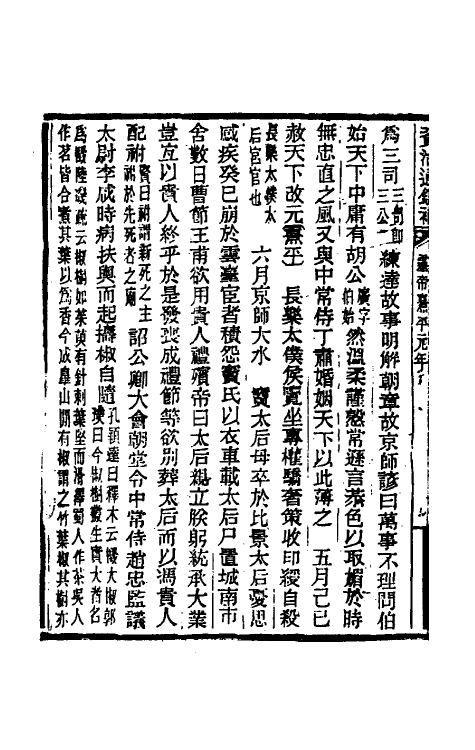 爲三司三司即三公練達故事明解朝章故京師諺曰萬事不理問伯
始天下中庸有胡公廣字伯始然溫柔謹慤常遜言恭色以取媚於時
無忠直之風又與中常侍丁肅婚姻天下以此薄之　五月己巳
赦天下改元熹平　長樂太僕侯覽坐專權驕奢策收印綬自殺
長樂太僕太后宮官也　六月京師大水　竇太后母卒於比景太后憂思
感疾癸巳崩於雲臺宦者積怨竇氏以衣車載太后尸置城南市
舍數日曹節王甫欲用貴人禮殯帝曰太后親立朕躬統承大業
豈宜以貴人終乎於是發喪成禮節等欲別葬太后而以馮貴人
配祔賢曰祔謂新死之主祔於先死者之廟詔公卿大會朝堂令中常侍趙忠監議
太尉李咸時病扶輿而起擣椒自隨孔穎達曰釋木云檓大椒郭璞曰今椒樹叢生實大者名
爲檓陸璣疏云椒樹如茱萸有針刺葉堅而滑澤蜀人作茶吳人
作茗皆合煮其葉以爲香今成臯山間有椒謂之竹葉椒其樹亦